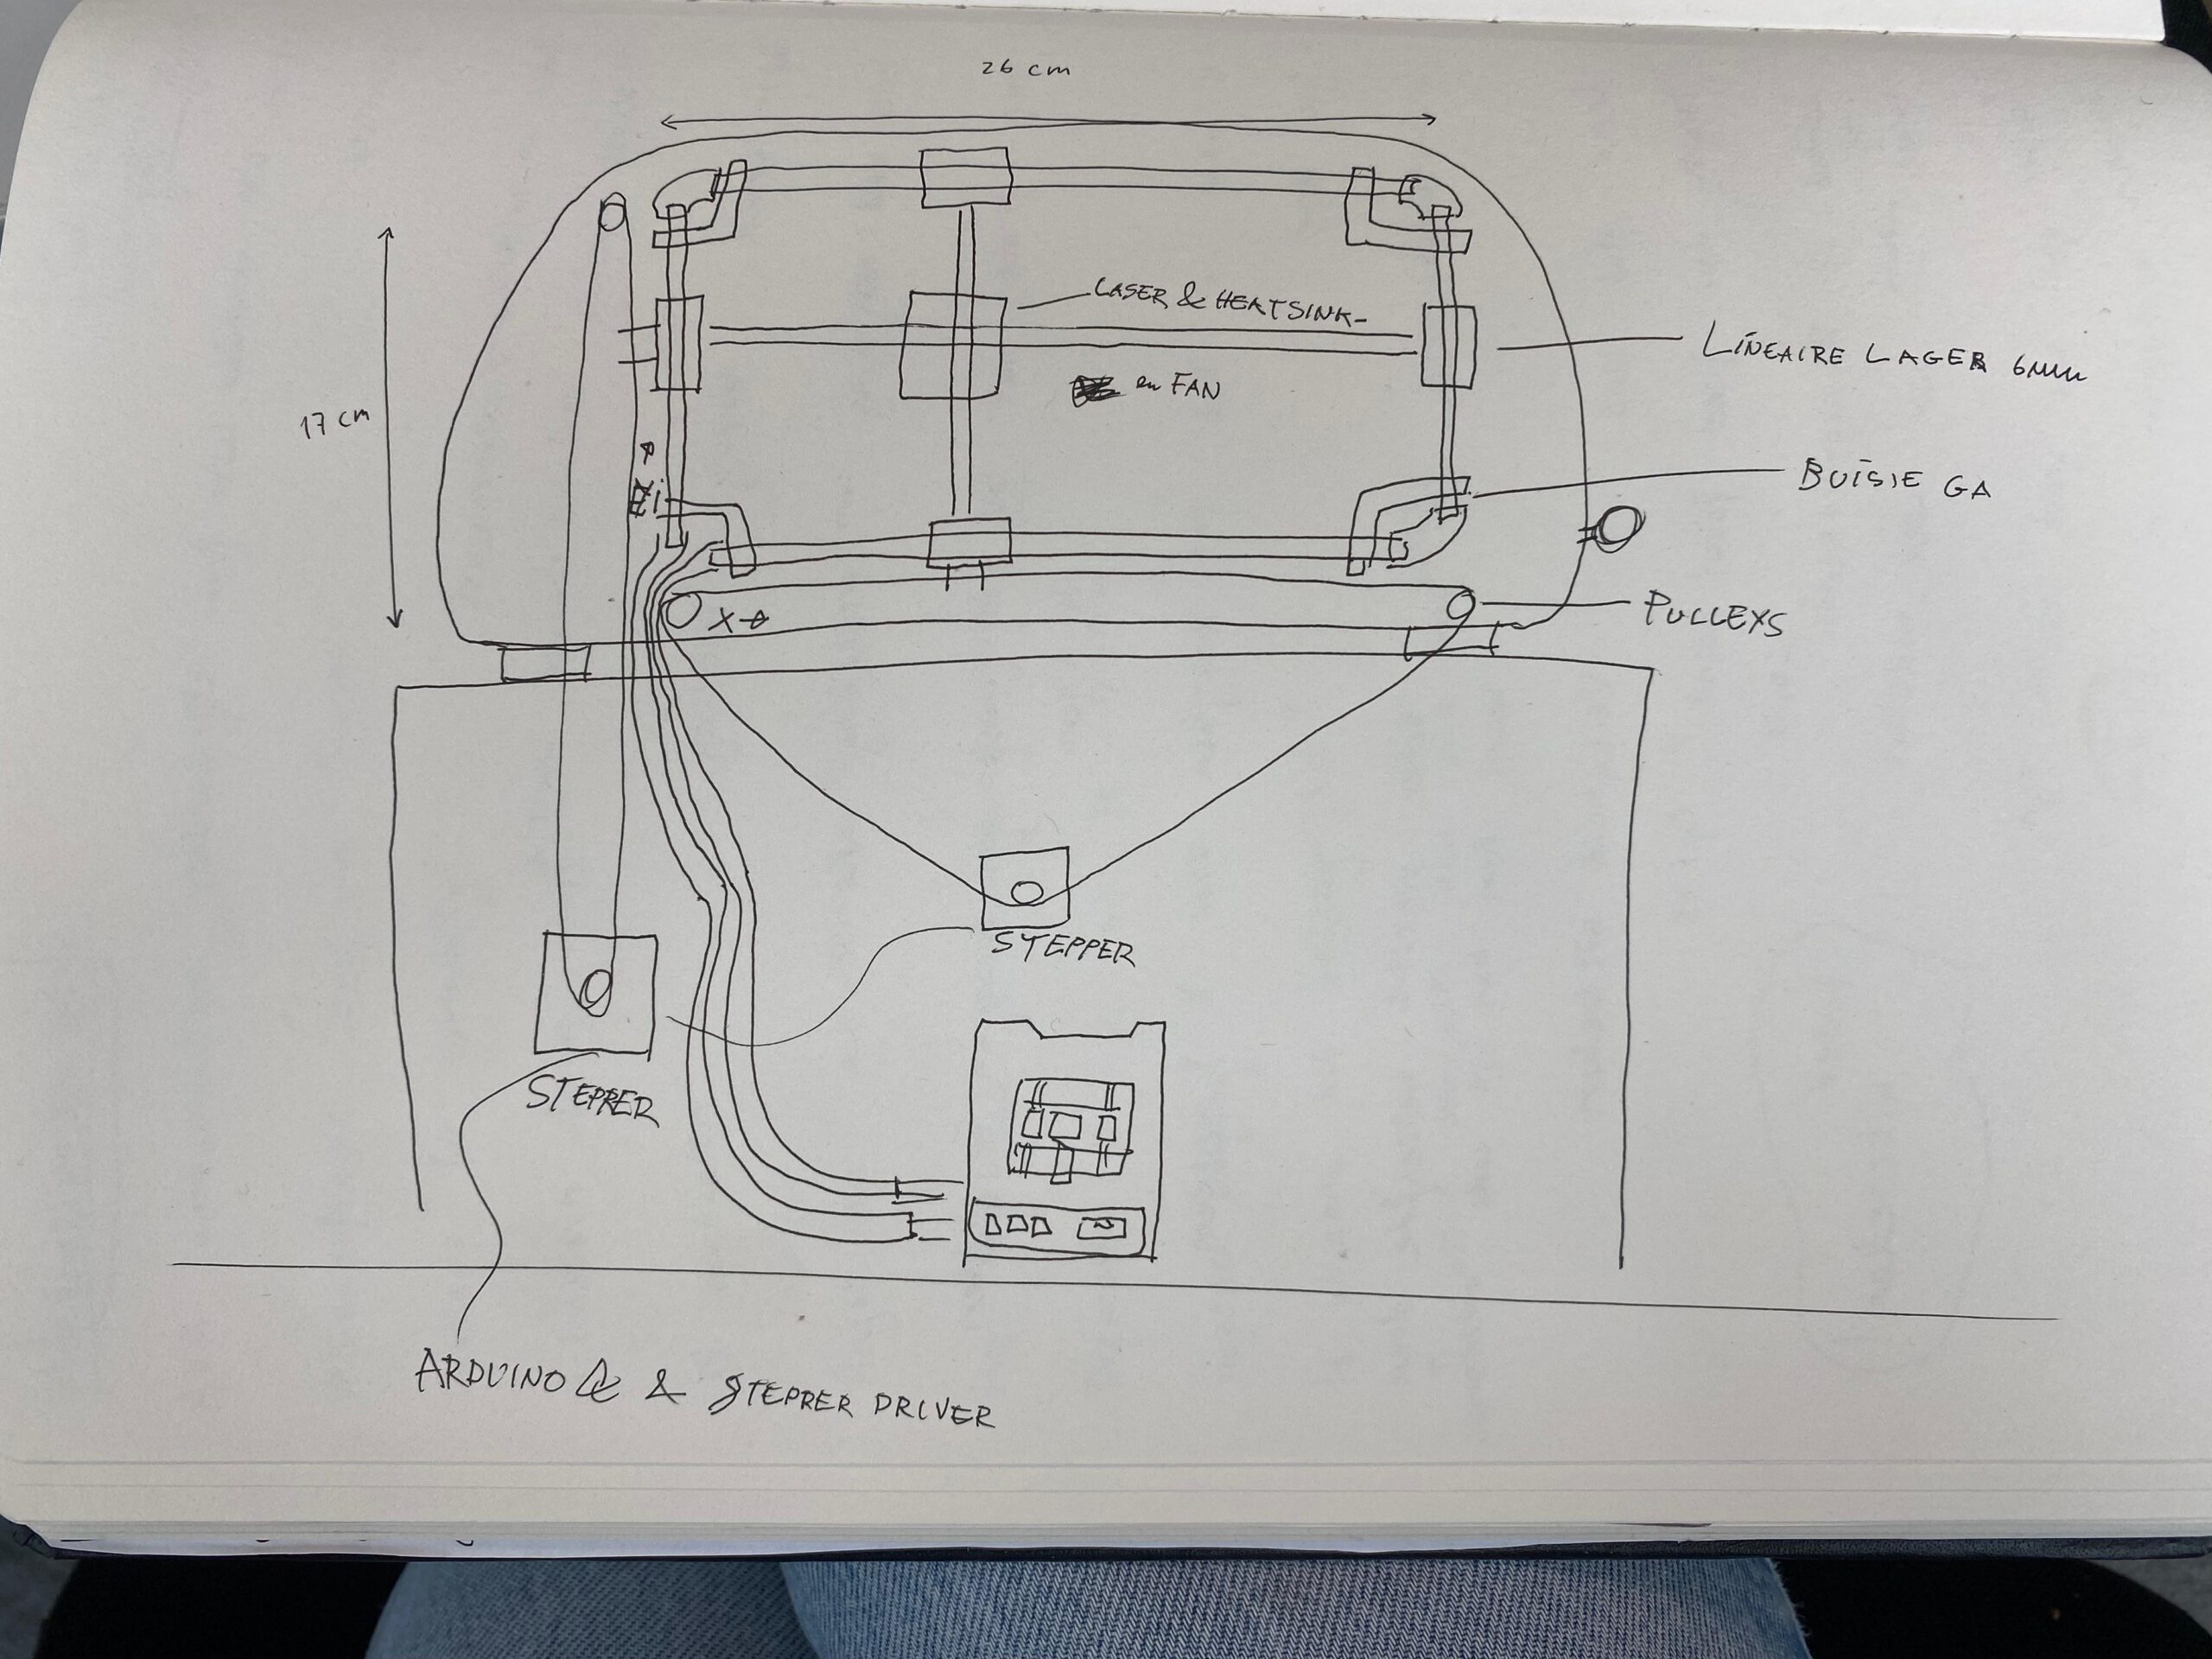 26 cm
LASER & HEATSINK
en FAN
LINEAIRE LAGER 6mm
17 cm
BUISJE GA
X
PULLEYS
STEPPER
STEPPER
ARDUINO & STEPPER DRIVER